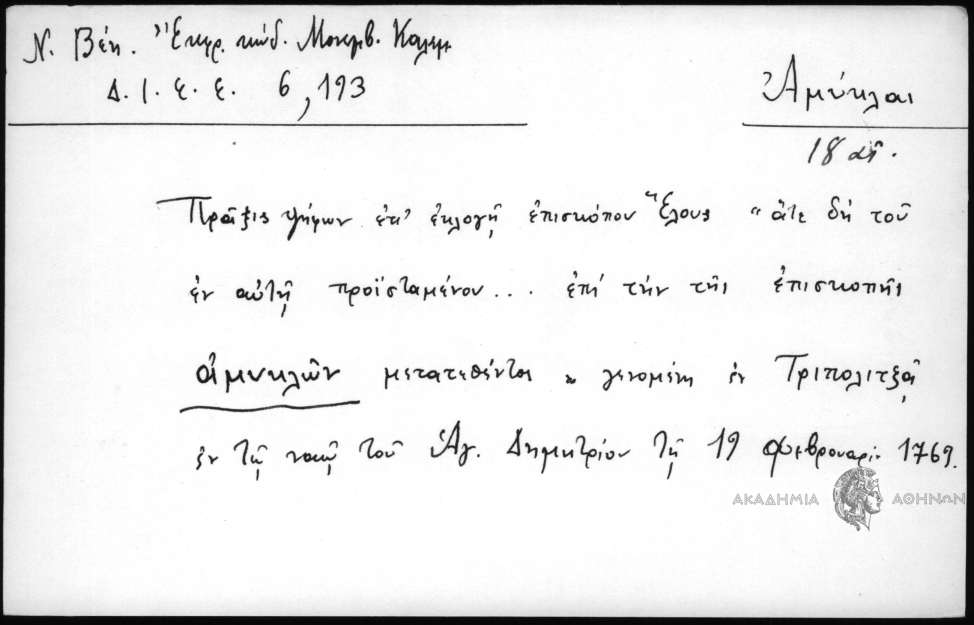 Ν. Βέη. Ἔκφρ. κώδ. Μονεμβ. Καλαμ
Δ. Ι. Ε. Ε. 6, 193
Ἀμύκλαι
18 αἰ.
Πρᾶξις ψήφων ἐπ' ἐκλογῇ ἐπισκόπου Ἕλους "ἅτε δὴ τοῦ
ἐν αὐτῇ προϊσταμένου... ἐπί τήν τῆς ἐπισκοπῆς
ἀμυκλῶν μετατεθέντος" γενομένη ἐν Τριπολιτζᾷ
ἐν τῷ ναῷ τοῦ Ἁγ. Δημητρίου τῇ 19 φεβρουαρί. 1769.
ΑΚΑΔΗΜΙΑ ΑΘΗΝΩΝ